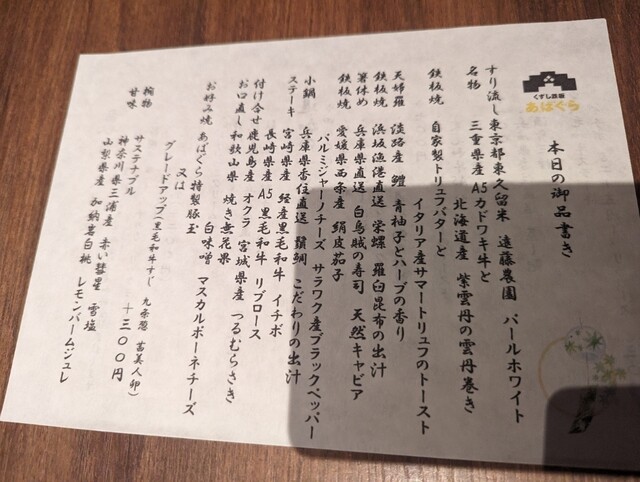 くずし鉄板
あばぐら
本日の御品書き
すり流し 東京都東久留米 遠藤農園 パールホワイト
名物 三重県産A5カドワキ牛と
北海道産 紫雲丹の雲丹巻き
鉄板焼 自家製トリュフバターと
イタリア産サマートリュフのトースト
天婦羅 淡路産 鱧 青柚子とハーブの香り
鉄板焼 浜坂漁港直送 栄螺 羅臼昆布の出汁
箸休め 兵庫県直送 白烏賊の寿司 天然キャビア
鉄板焼 愛媛県西条産 絹皮茄子
パルミジャーノチーズ サラワク産ブラックペッパー
小鍋 兵庫県香住直送 鬚鯛 こだわりの出汁
ステーキ 宮崎県産 経産黒毛和牛 イチボ
長崎県産 A5黒毛和牛 リブロース
付け合せ 鹿児島産 オクラ 宮城県産 つるむらさき
お口直し 和歌山県 焼き無花果
白味噌 マスカルポーネチーズ
お好み焼 あばぐら特製豚玉
又は
グレードアップ(黒毛和牛すじ 九条葱 苗美人卵)
+300円
椀物 サステナブル
甘味 神奈川県三浦産 赤い彗星 雪塩
山梨県産 加納岩白桃 レモンバームジュレ